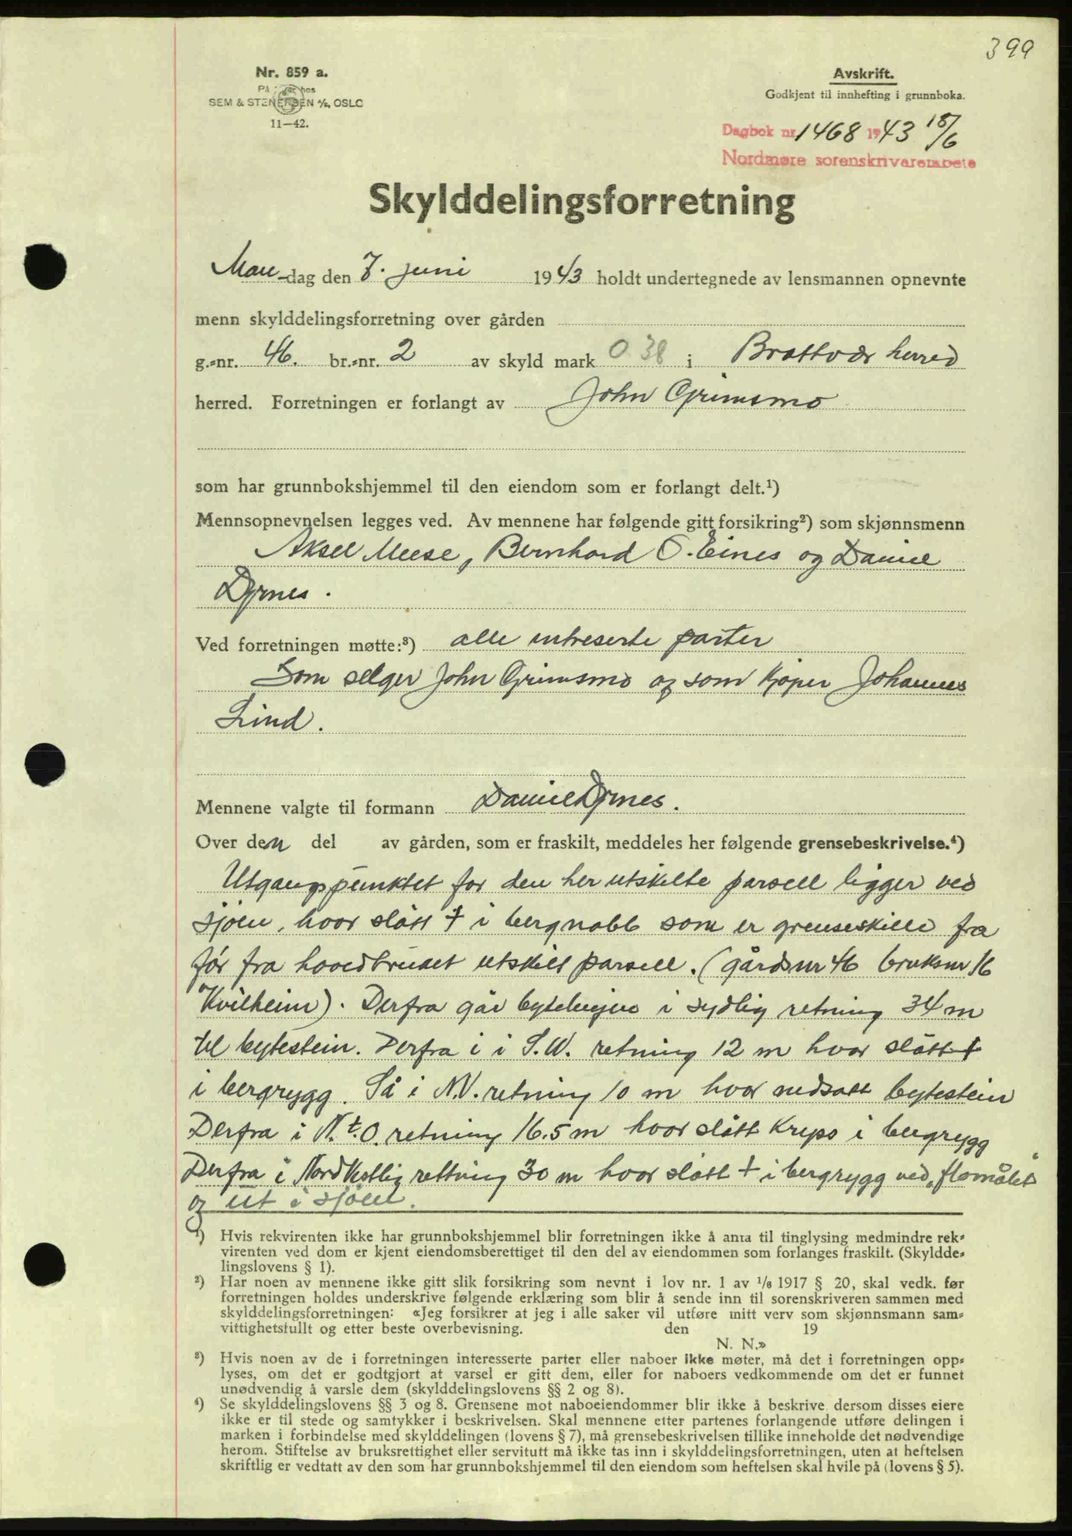 399
Nr. 859 a.
På hos
SEM & STENERSEN A/S, OSLO
11—42.
Avskrift.
Godkjent til innhefting i grunnboka.
Dagbok nr. 1468 1943 18/6
Nordmøre sorenskrivarembete
Skylddelingsforretning
Man-dag den 7. juni 1943 holdt undertegnede av lensmannen opnevnte
menn skylddelingsforretning over gården
g.-nr. 46. br.-nr. 2 av skyld mark 0.38 i Brattvær herred
herred. Forretningen er forlangt av John Grimsmo
som har grunnbokshjemmel til den eiendom som er forlangt delt.¹)
Mennsopnevnelsen legges ved. Av mennene har følgende gitt forsikring²) som skjønnsmenn
Aksel Meese, Bernhard O. Eines og Daniel
Dyrnes.
Ved forretningen møtte:³) alle intreserte parter
Som selger John Grimsmo og som kjøper Johannes
Lind.
Mennene valgte til formann Daniel Dyrnes.
Over den del av gården, som er fraskilt, meddeles her følgende grensebeskrivelse.⁴)
Utgangspunktet for den her utskilte parsell ligger ved
sjøen, hvor slått † i bergnabb som er grenseskille fra
før fra hovedbruket utskilt parsell. (gårdsnr 46 bruksnr 16
Kvilheim). Derfra går bytelinjen i sydlig retning 34 m
til bytestein. Derfra i i S.W. retning 12 m hvor slått †
i bergrygg. Så i N.V. retning 10 m hvor nedsatt bytestein
Derfra i N.t.O. retning 16.5 m hvor slått kryss i bergrygg
Derfra i NordVestlig rettning 30 m hvor slått † i bergrygg ved „flomålet"
og ut i sjøen.
¹) Hvis rekvirenten ikke har grunnbokshjemmel blir forretningen ikke å anta til tinglysing medmindre rek-
virenten ved dom er kjent eiendomsberettiget til den del av eiendommen som forlanges fraskilt. (Skyldde-
lingslovens § 1).
²) Har noen av mennene ikke gitt slik forsikring som nevnt i lov nr. 1 av 1/6 1917 § 20, skal vedk. før
forretningen holdes underskrive følgende erklæring som blir å sende inn til sorenskriveren sammen med
skylddelingsforretningen: «Jeg forsikrer at jeg i alle saker vil utføre mitt verv som skjønnsmann sam-
vittighetsfullt og etter beste overbevisning. den 19
N. N.»
³) Hvis noen av de i forretningen interesserte parter eller naboer ikke møter, må det i forretningen opp-
lyses, om det er godtgjort at varsel er gitt dem, eller for naboers vedkommende om det er funnet
unødvendig å varsle dem (skylddelingslovens §§ 2 og 8).
⁴) Se skylddelingslovens §§ 3 og 8. Grensene mot naboeiendommer blir ikke å beskrive dersom disses eiere
ikke er til stede og samtykker i beskrivelsen. Skal mennene etter partenes forlangende utføre delingen i
marken i forbindelse med skylddelingen (lovens § 7), må grensebeskrivelsen tillike inneholde det nødvendige
herom. Stiftelse av bruksrettighet eller servitutt må ikke tas inn i skylddelingsforretningen, uten at heftelsen
skriftlig er vedtatt av den som har grunnbokshjemmel til den eiendom som heftelsen skal hvile på (lovens § 5).